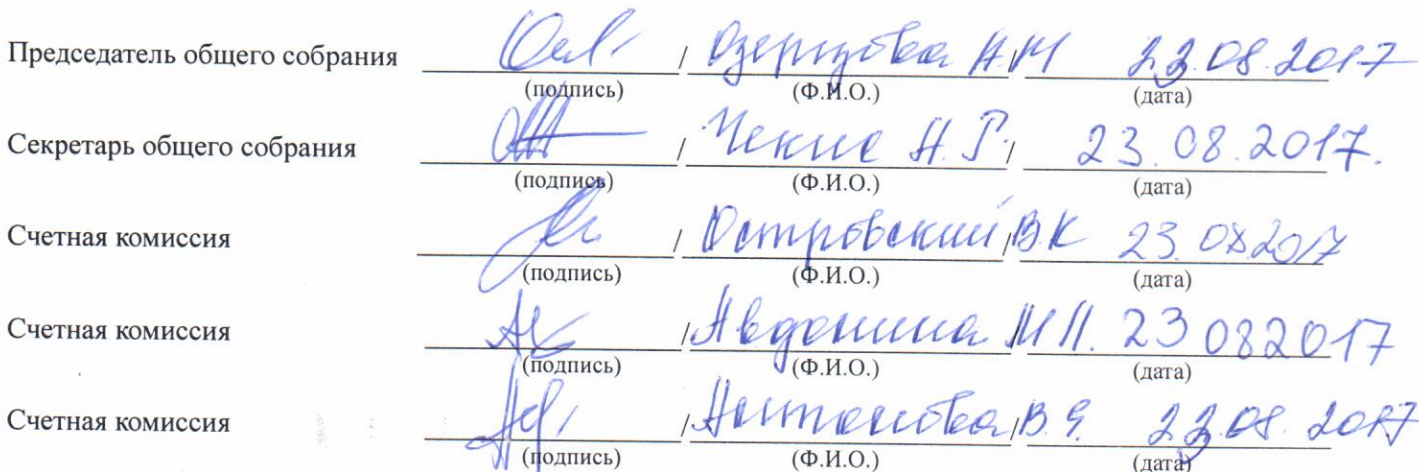 Председатель общего собрания / А.М 23.08.2017
(подпись) (Ф.И.О.) (дата)
Секретарь общего собрания / Чекис Н. Г. / 23.08.2017.
(подпись) (Ф.И.О.) (дата)
Счетная комиссия / Островский / В.К 23.08.2017
(подпись) (Ф.И.О.) (дата)
Счетная комиссия / Авдонина М П. 23 08 2017
(подпись) (Ф.И.О.) (дата)
Счетная комиссия / Антонова / В. Я. 23.08.2017
(подпись) (Ф.И.О.) (дата)